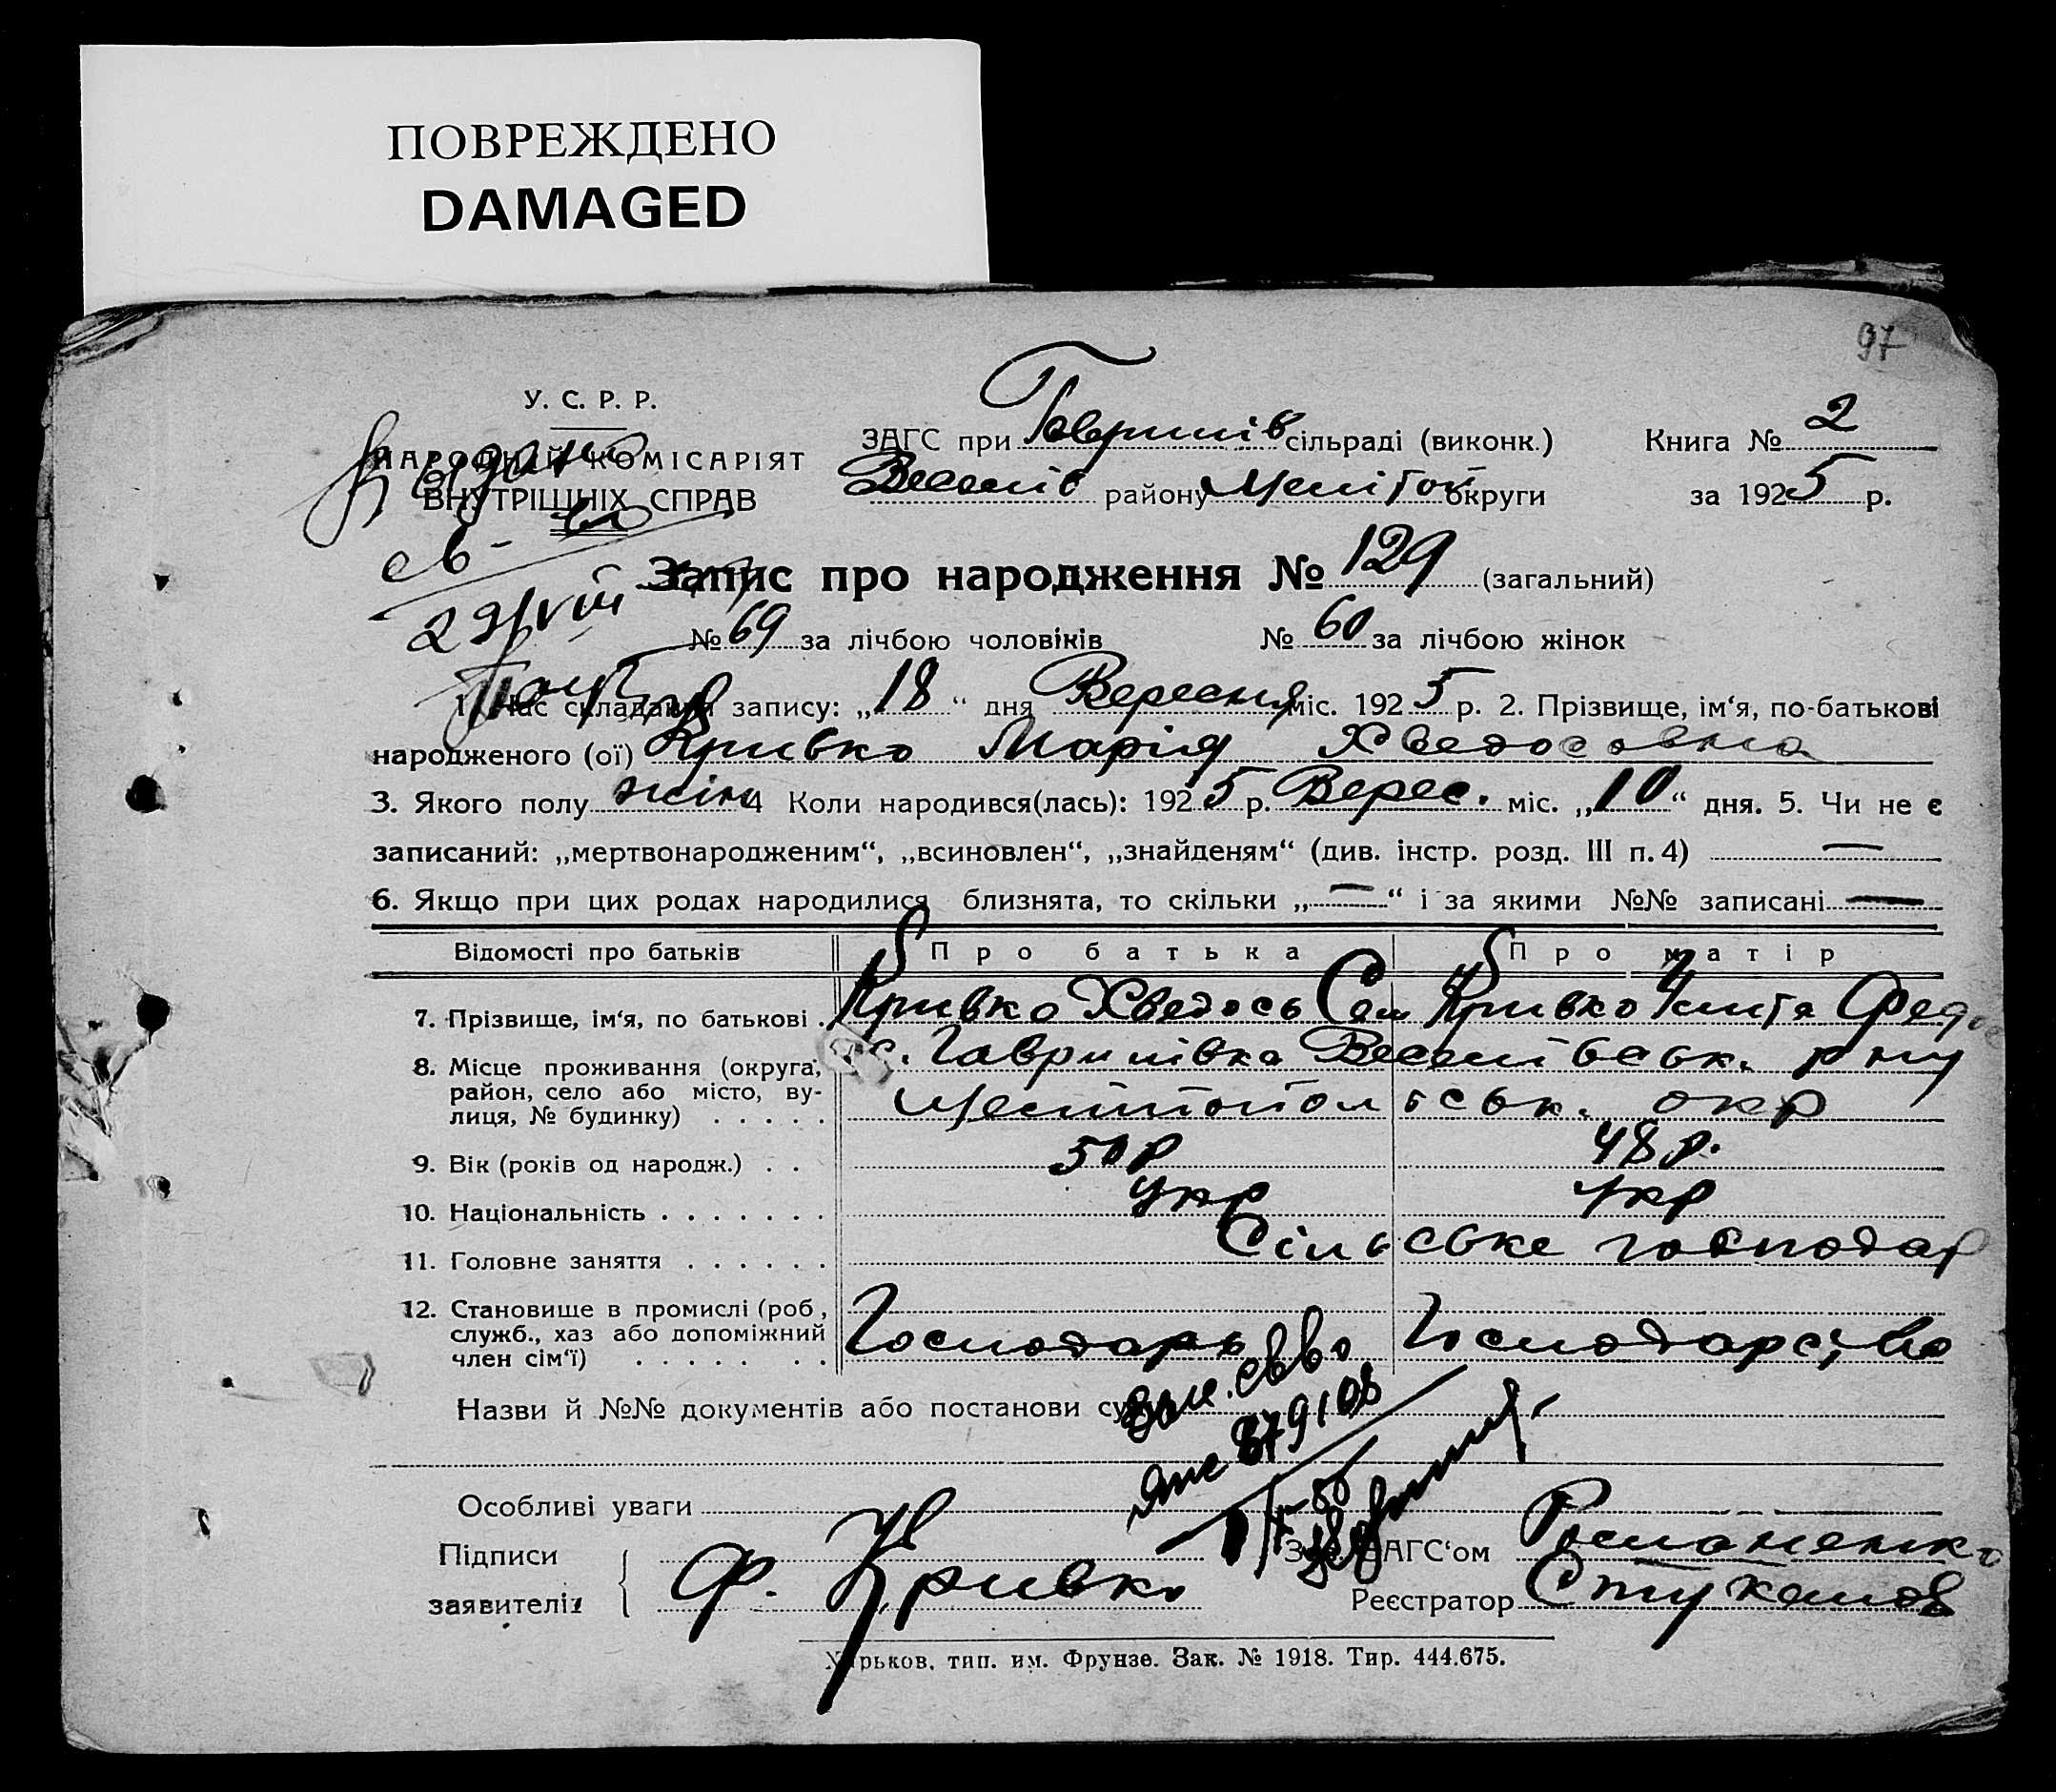 ПОВРЕЖДЕНО
DAMAGED
97
У. С. Р. Р.
НАРОДНІЙ КОМІСАРІЯТ
ВНУТРІШНІХ СПРАВ
ЗАГС при Гаврилів сільраді (виконк.) Книга № 2
Веселів району Меліток округи за 1925 р.
Запис про народження № 129 (загальний)
№ 69 за лічбою чоловіків № 60 за лічбою жінок
1. Час складання запису: „18“ дня Вересня міс. 1925 р. 2. Прізвище, ім‘я, по-батькові
народженого (ої) Кривко Марія Хведосовна
3. Якого полу жін 4 Коли народився(лась): 1925 р. Верес. міс. „10“ дня. 5. Чи не є
записаний: „мертвонародженим“, „всиновлен“, „знайденям“ (див. інстр. розд. III п. 4) —
6. Якщо при цих родах народилися близнята, то скільки „—“ і за якими №№ записані —
Відомості про батьків Про батька Про матір
7. Прізвище, ім‘я, по батькові . Кривко Хведось Сем Кривко Фед
8. Місце проживання (округа, район, село або місто, вулиця, № будинку) . . . . . с. Гаврилівка Веселівськ. р ну
Мелітопольськ. окр
9. Вік (років од народж.) . . 50 р 48 р.
10. Національність . . . . . . . Укр Укр
11. Головне заняття . . . . . . Сільське господар
12. Становище в промислі (роб., служб., хаз або допоміжний член сім‘ї) . . . . . . . Господарь Господарство
Назви й №№ документів або постанови суду
Особливі уваги
Підписи
заявителів Ф. Кривко
Зав. ЗАГС‘ом Романенко
Реєстратор Стукалов
Харьков, тип. им. Фрунзе. Зак. № 1918. Тир. 444.675.